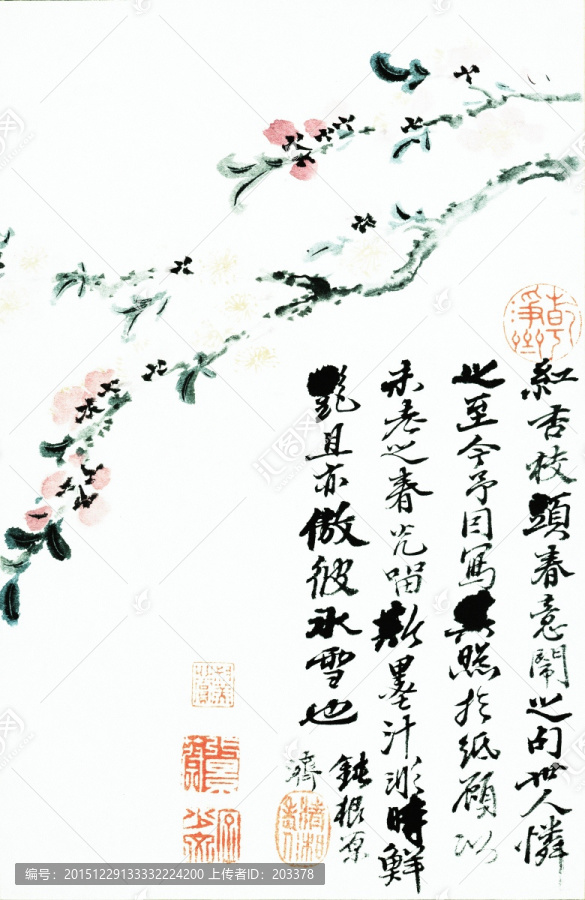 紅杏枝頭春意鬧之句世人憐
之至今予因寫其照於紙顧以
未老之春光留斯墨汁時鮮
艷且亦傲彼冰雪也
鈍根原
濟
编号：20151229133332224200 上传者ID：203378